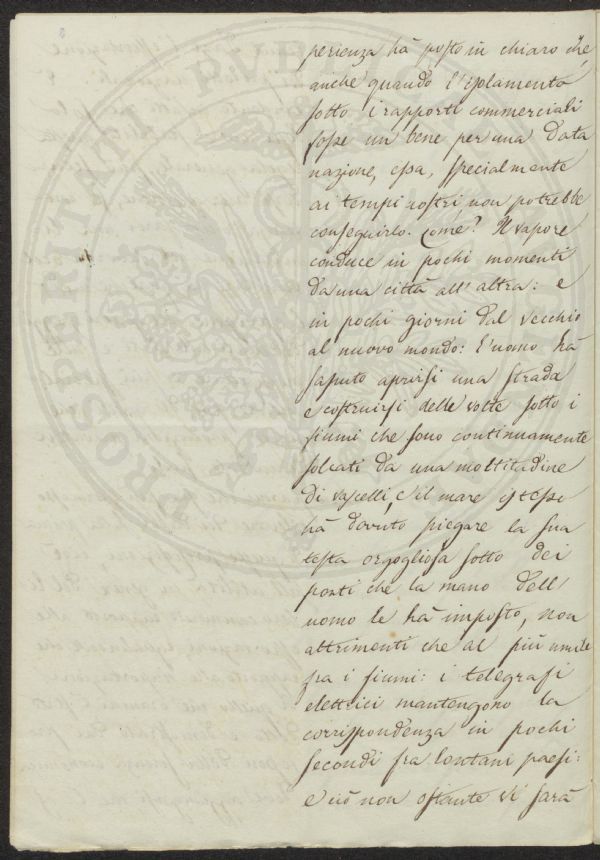 perienza hà posto in chiaro che,
anche quando l'isolamento
sotto i rapporti commerciali
fosse un bene per una data
nazione, essa, specialmente
ai tempi nostri non potrebbe
conseguirlo. Come? Il vapore
conduce in pochi momenti
da una città all'altra: e
in pochi giorni dal vecchio
al nuovo mondo: l'uomo hà
saputo aprirsi una strada
e costruirsi delle volte sotto i
fiumi che sono continuamente
solcati da una moltitudine
di vascelli, e il mare istesso
hà dovuto piegare la sua
testa orgogliosa sotto dei
ponti che la mano dell
uomo le hà imposto, non
altrimenti che al più umile
fra i fiumi: i telegrafi
elettrici mantengono la
corrispondenza in pochi
secondi fra lontani paesi:
e ciò non ostante vi sarà
PROSPERITAT PVBL